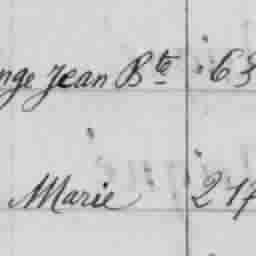 nge Jean Bte 63
Marie 217